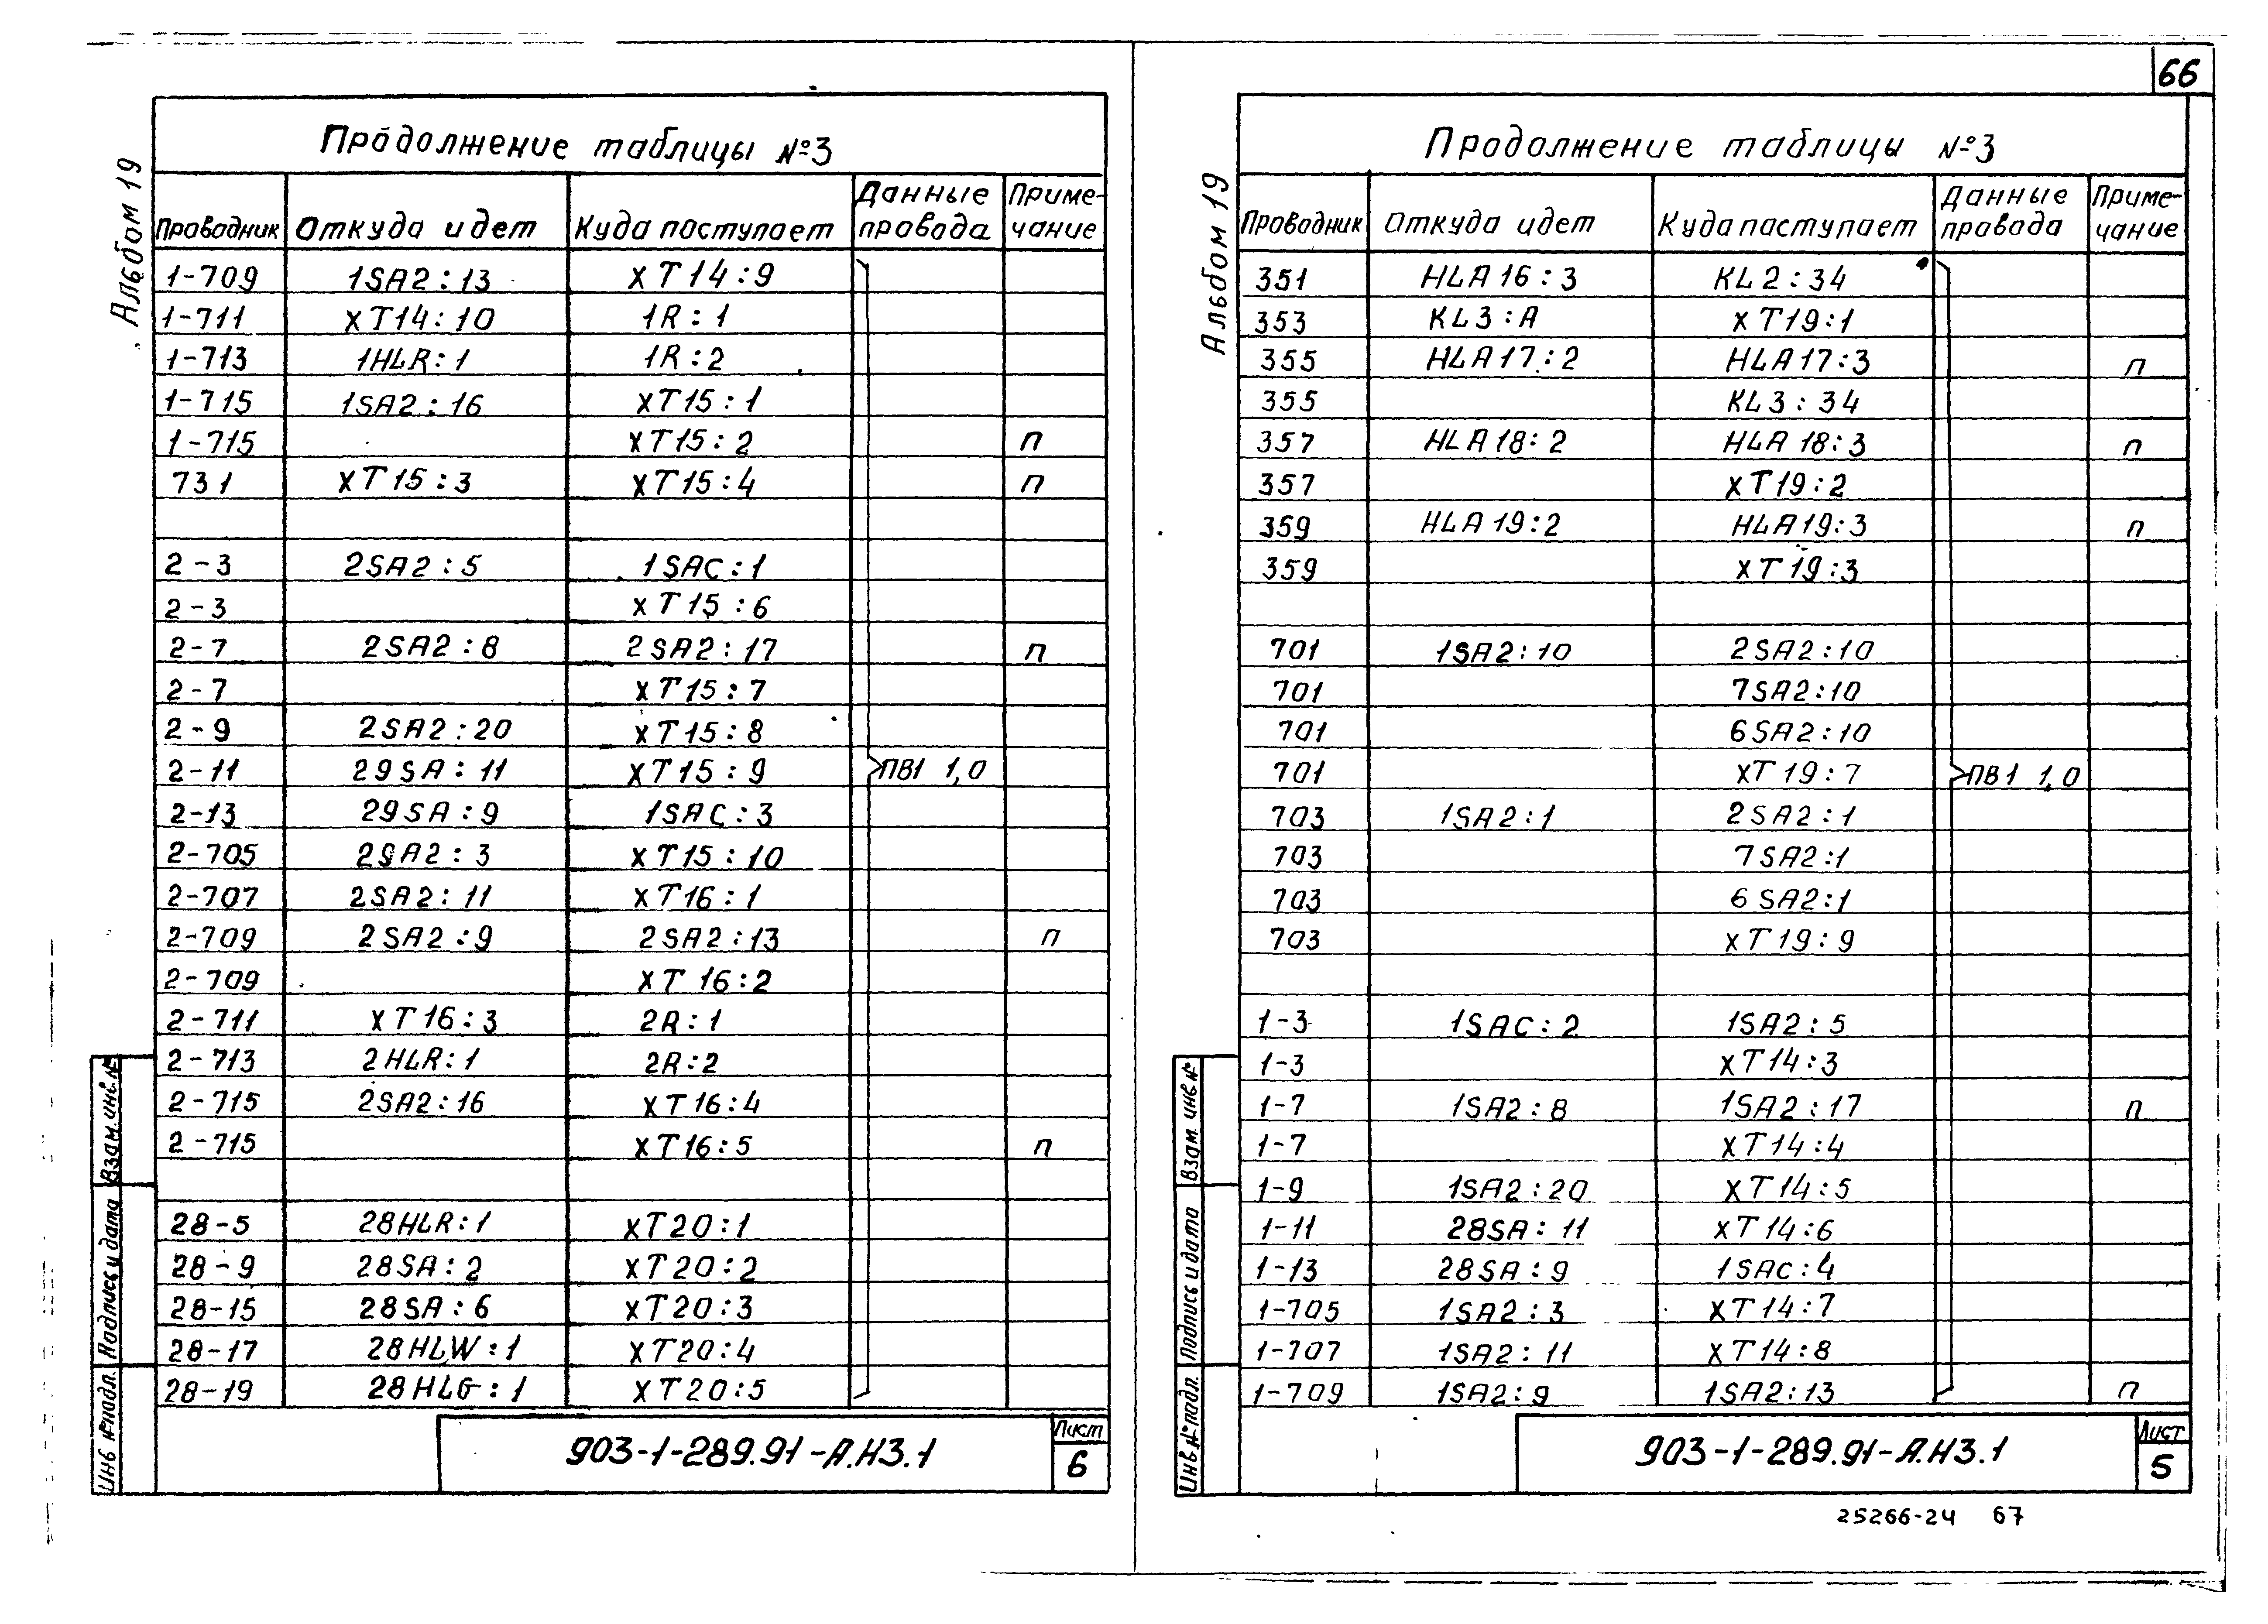 66
Альбом 19
Продолжение таблицы №3
Проводник Откуда идет Куда поступает Данные провода Приме-чание
1-709 1SA2:13 XT14:9
1-711 XT14:10 1R:1
1-713 1HLR:1 1R:2
1-715 1SA2:16 XT15:1
1-715 XT15:2 п
731 XT15:3 XT15:4 п
2-3 2SA2:5 1SAC:1
2-3 XT15:6
2-7 2SA2:8 2SA2:17 п
2-7 XT15:7
2-9 2SA2:20 XT15:8
2-11 29SA:11 XT15:9 ПВ1 1,0
2-13 29SA:9 1SAC:3
2-705 2SA2:3 XT15:10
2-707 2SA2:11 XT16:1
2-709 2SA2:9 2SA2:13 п
2-709 XT16:2
2-711 XT16:3 2R:1
2-713 2HLR:1 2R:2
2-715 2SA2:16 XT16:4
2-715 XT16:5 п
28-5 28HLR:1 XT20:1
28-9 28SA:2 XT20:2
28-15 28SA:6 XT20:3
28-17 28HLW:1 XT20:4
28-19 28HLG:1 XT20:5
Взам. инв. №
Подпись и дата
Инв № подл.
903-1-289.91-А.Н3.1
Лист
6
Альбом 19
Продолжение таблицы №3
Проводник Откуда идет Куда поступает Данные провода Приме-чание
351 HLA16:3 KL2:34
353 KL3:A XT19:1
355 HLA17:2 HLA17:3 п
355 KL3:34
357 HLA18:2 HLA18:3 п
357 XT19:2
359 HLA19:2 HLA19:3 п
359 XT19:3
701 1SA2:10 2SA2:10
701 7SA2:10
701 6SA2:10
701 XT19:7 ПВ1 1,0
703 1SA2:1 2SA2:1
703 7SA2:1
703 6SA2:1
703 XT19:9
1-3 1SAC:2 1SA2:5
1-3 XT14:3
1-7 1SA2:8 1SA2:17 п
1-7 XT14:4
1-9 1SA2:20 XT14:5
1-11 28SA:11 XT14:6
1-13 28SA:9 1SAC:4
1-705 1SA2:3 XT14:7
1-707 1SA2:11 XT14:8
1-709 1SA2:9 1SA2:13 п
Взам. инв №
Подпись и дата
Инв № подл.
903-1-289.91-А.Н3.1
Лист
5
25266-24 67